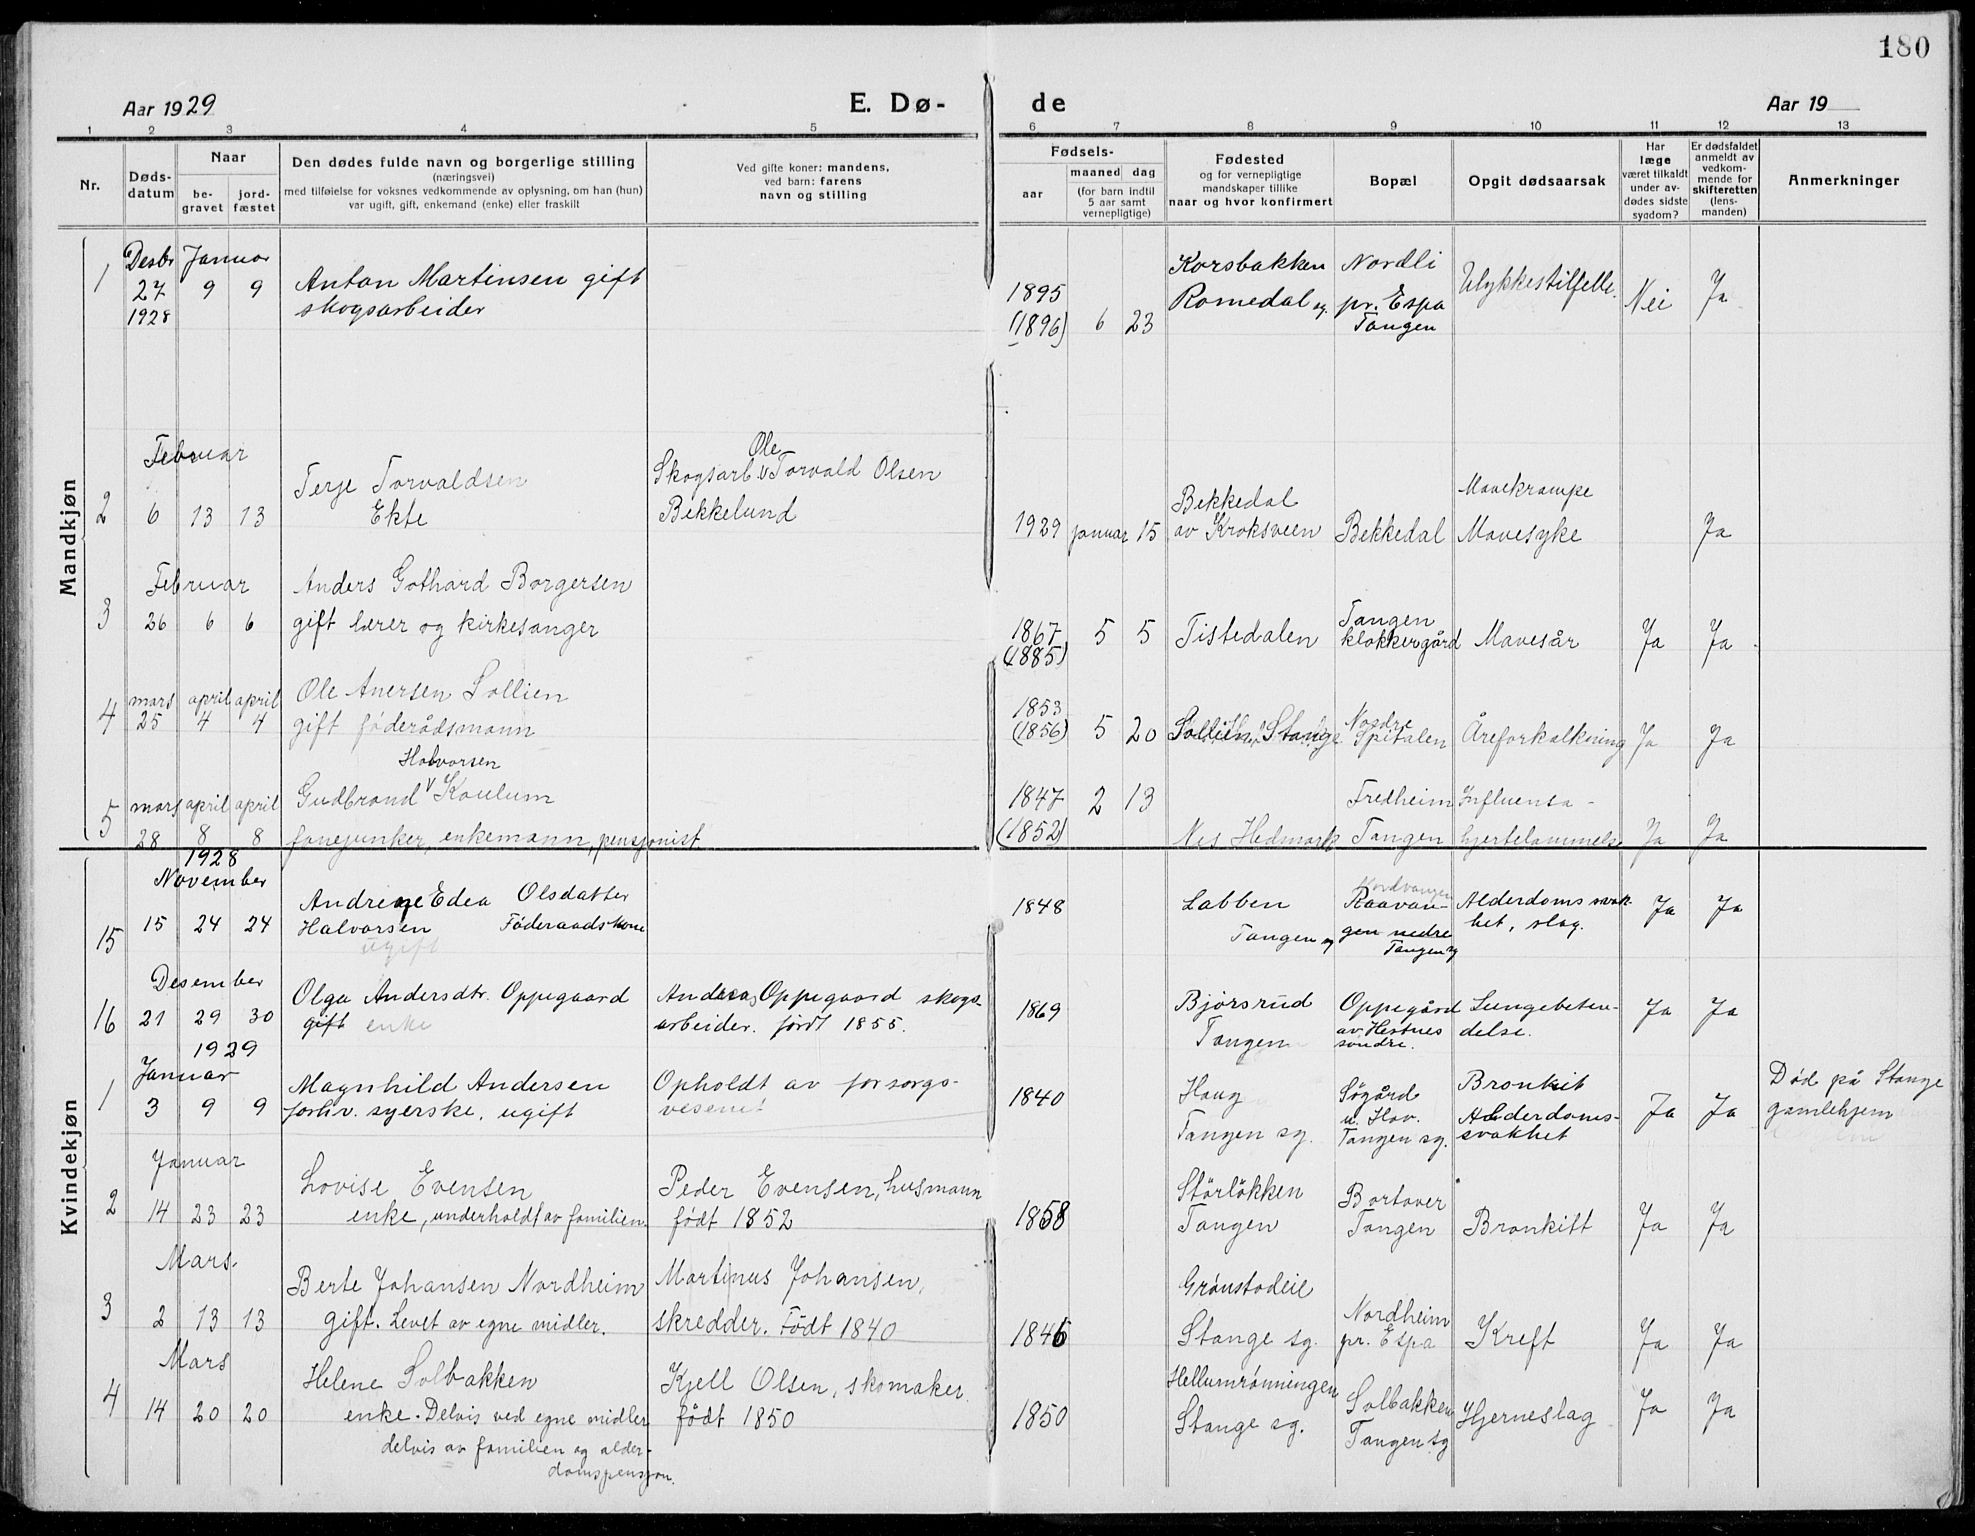 180
Aar 1929
E. Dø-
de
Aar 19
1 2 3 4 5 6 7 8 9 10 11 12 13
Nr.
Døds-
datum
Naar
be-
gravet
jord-
fæstet
Den dødes fulde navn og borgerlige stilling
(næringsvei)
med tilføielse for voksnes vedkommende av oplysning, om han (hun)
var ugift, gift, enkemand (enke) eller fraskilt
Ved gifte koner: mandens,
ved barn: farens
navn og stilling
Fødsels-
aar
maaned dag
(for barn indtil
5 aar samt
vernepligtige)
Fødested
og for vernepligtige
mandskaper tillike
naar og hvor konfirmert
Bopæl
Opgit dødsaarsak
Har
læge
været tilkaldt
under av-
dødes sidste
sygdom?
Er dødsfaldet
anmeldt av
vedkom-
mende for
skifteretten
(lens-
manden)
Anmerkninger
Mandkjøn
1
Desbr Januar
27 9 9
1928
Anton Martinsen gift
skogsarbeider
1895
(1896) 6 23
Korsbakken
Romedal sg.
Nordli
pr. Espa
Tangen
Ulykkestilfelle.
Nei
Ja
2
Februar
6 13 13
Terje Torvaldsen
Ekte
Ole
Skogsarb. V Torvald Olsen
Bekkelund
1929 januar 15
Bekkedal
av Kroksveen
Bekkedal
Mavekrampe
Mavesyke
Ja
3
Februar
26 6 6
Anders Gothard Borgersen
gift lærer og kirkesanger
1867 5 5
(1885)
Tistedalen
Tangen
klokkergård
Mavesår
Ja
Ja
4
mars april april
25 4 4
Ole Anersen Sollien
gift föderådsmann
1853
(1856) 5 20
Sollien, Stange
Nordre
Spitalen
Åreforkalkning
Ja
Ja
5
mars april april
28 8 8
Halvorsen
Gudbrand V Koulum
fanejunker, enkemann, pensjonist
1847 2 13
(1852)
Nes Hedmark
Fredheim
Tangen
Influensa -
hjertelammelse
Ja
Ja
Kvindekjøn
1928
15
November
15 24 24
Andrine Edea Olsdatter
Halvorsen Föderaadskone
ugift
1848
Labben
Tangen sg
Nordvangen
Raavan-
gen nedre
Tangen sg
Alderdomssvak-
het, slag.
Ja
Ja
16
Desember
21 29 30
Olga Andersdtr. Oppegaard
gift enke
Andreas Oppegaard skogs-
arbeider. født 1855.
1869
Bjørsrud
Tangen
Oppegård
av Hestnes
søndre.
Lungebeten-
delse.
Ja
Ja
1929
1
Januar
3 9 9
Magnhild Andersen
forhv. syerske, ugift
Opholdt av forsorgs-
vesenet
1840
Haug
Tangen sg.
Sögård
u. Hov.
Tangen sg.
Bronkit
Alderdoms-
svakhet
Ja
Ja
Död på Stange
gamlehjem
2
Januar
14 23 23
Lovise Evensen
enke, underholdt av familien.
Peder Evensen, husmann
födt 1852
1858
Störlökken
Tangen
Bortover
Tangen
Bronkitt
Ja
Ja
3
Mars.
2 13 13
Berte Johansen Nordheim
gift. Levet av egne midler.
Martinus Johansen,
skredder. Födt 1840
1846
Grönstadeie
Stange sg.
Nordheim
pr. Espa
Kreft
Ja
Ja
4
Mars
14 20 20
Helene Solbakken
enke. Delvis ved egne midler
delvis av familien og alder-
domspensjon.
Kjell Olsen, skomaker.
födt 1850
1850
Hellumrönningen
Stange sg.
Solbakken
Tangen sg
Hjerneslag
Ja
Ja